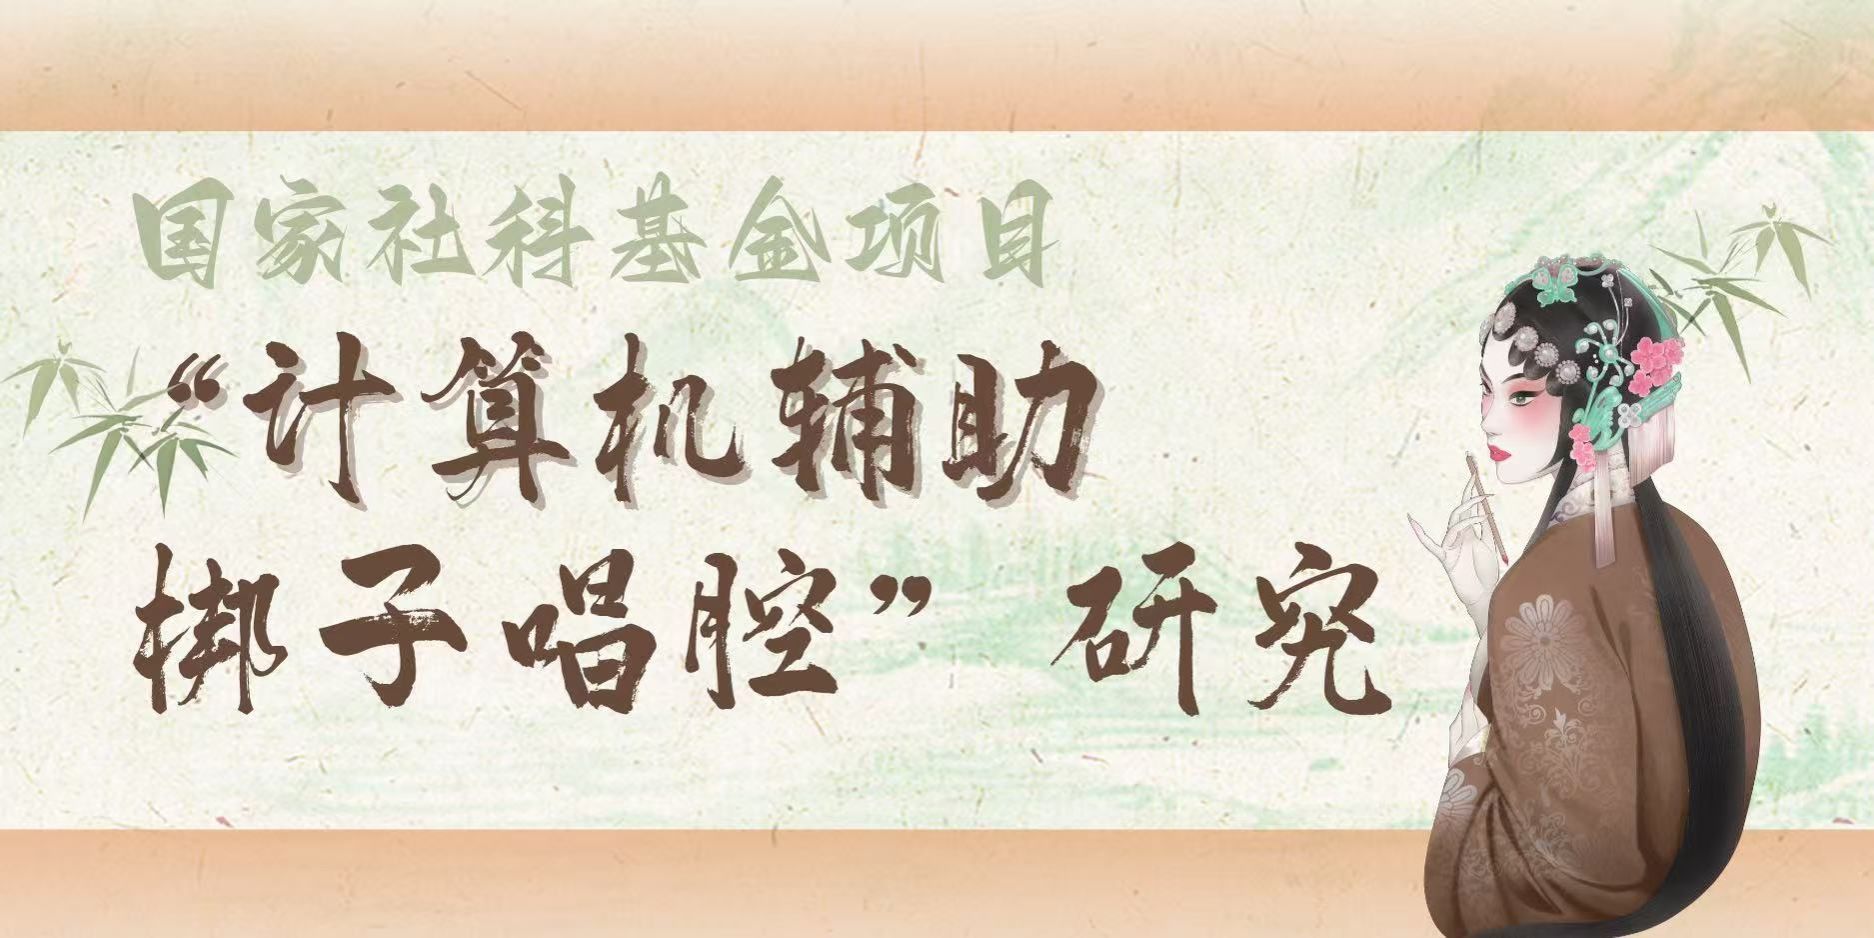 国家社科基金项目
“计算机辅助
梆子唱腔”研究